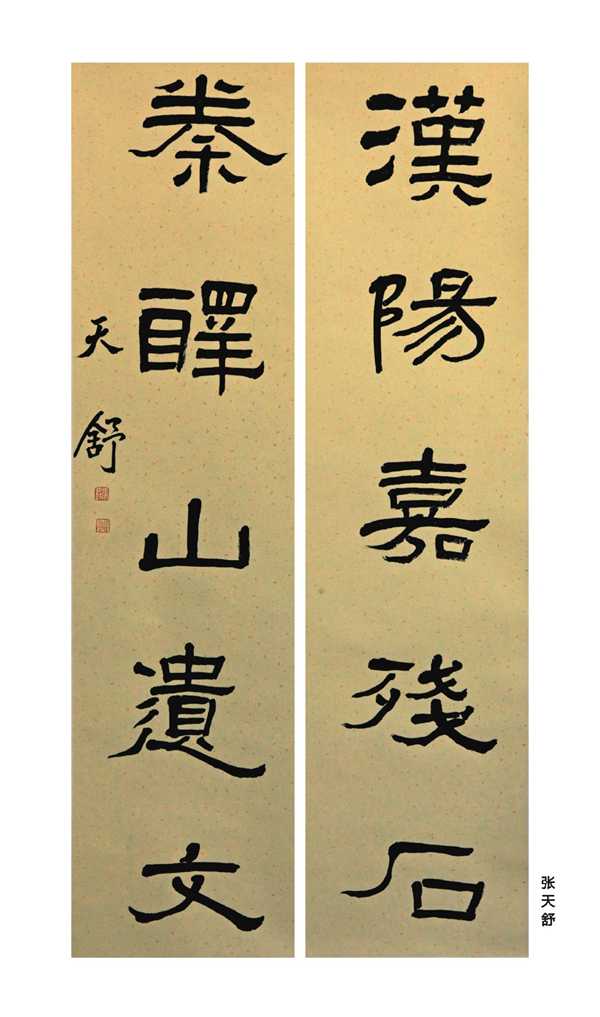 漢陽嘉殘石
秦醳山遺文
天舒
张天舒